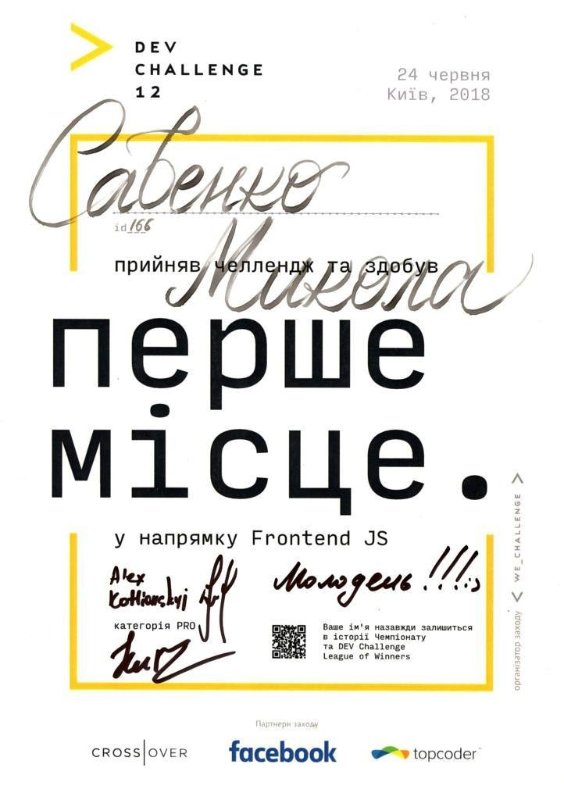 DEV
CHALLENGE
12
24 червня
Київ, 2018
Савенко
id 166
Микола
прийняв челлендж та здобув
перше
місце.
у напрямку Frontend JS
Alex
Молодець!!! :)
категорія PRO
Ваше ім'я назавжди залишиться
в історії Чемпіонату
та DEV Challenge
League of Winners
організатор заходу
WE_CHALLENGE
Партнери заходу
CROSS|OVER
facebook
topcoder